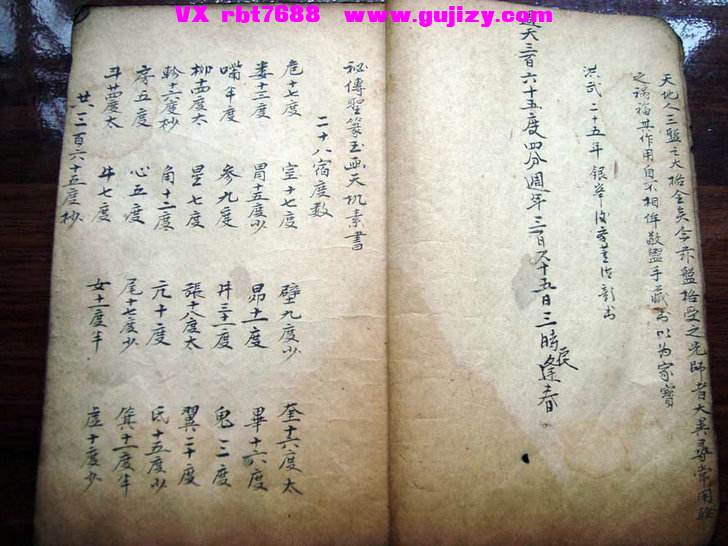 VX rbt7688 www.gujizy.com
天地人三盤之大格全矣今非盤格受之先師者大異尋常用驗
之禍福其作用自不相侔敬盥手藏書以為家寶
洪武二十五年
週天三百六十五度四分週年三百六十五日三時辰逢春
秘傳聖篆玉函天机素書
二十八宿度数
危十七度 室十七度 壁九度少 奎十六度太
婁十三度 胃十五度少 昴十一度 畢十六度
嘴半度 參九度 井三十一度 鬼三度
柳十四度太 星七度 張十八度太 翼二十度
軫十八度秒 角十二度 亢十度 氐十五度少
房五度 心五度 尾十七度少 箕十一度半
斗廿四度太 牛七度 女十一度半 虚十度少
共三百六十五度秒